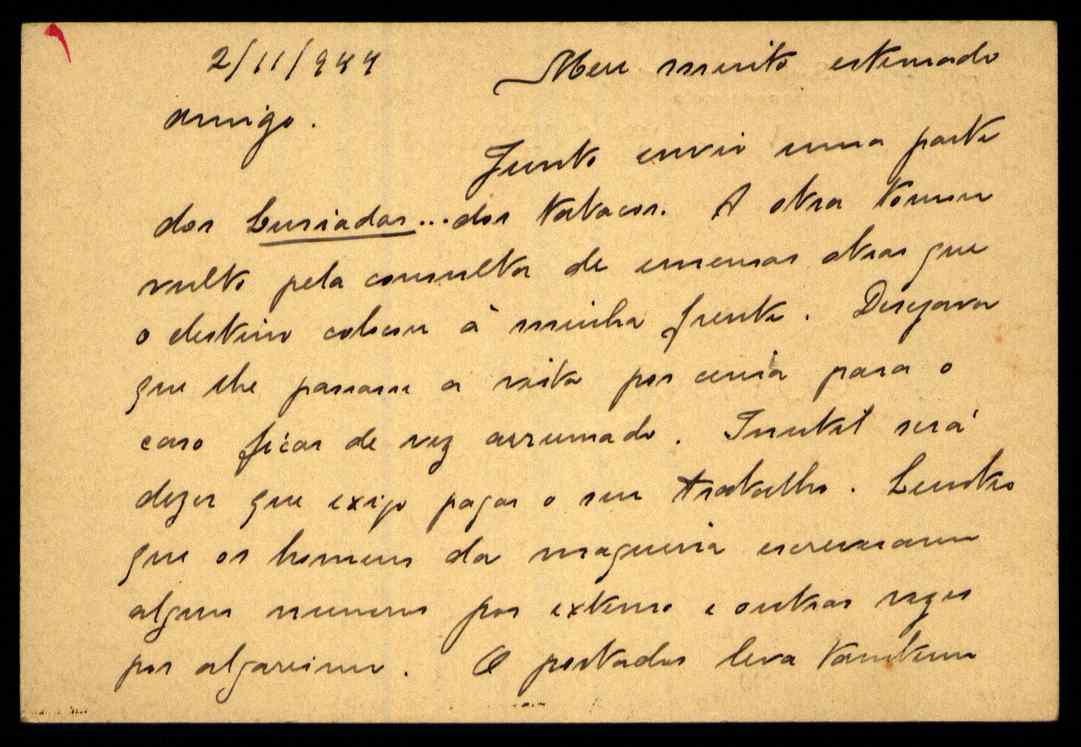 2/11/944 Meu muito estimado
amigo.
Junto envio uma parte
dos Lusiadas...dos tabacos. A obra tomou
vulto pela consulta de imensas obras que
o destino colocou à minha frente. Desejava
que lhe passasse a vista por cima para o
caso ficar de vez arrumado. Inutil será
dizer que exijo pagar o seu trabalho. Lembro
que os homens da maquina escreveram
alguns numeros por extenso e outras vezes
por algarismo. O portador leva tambem